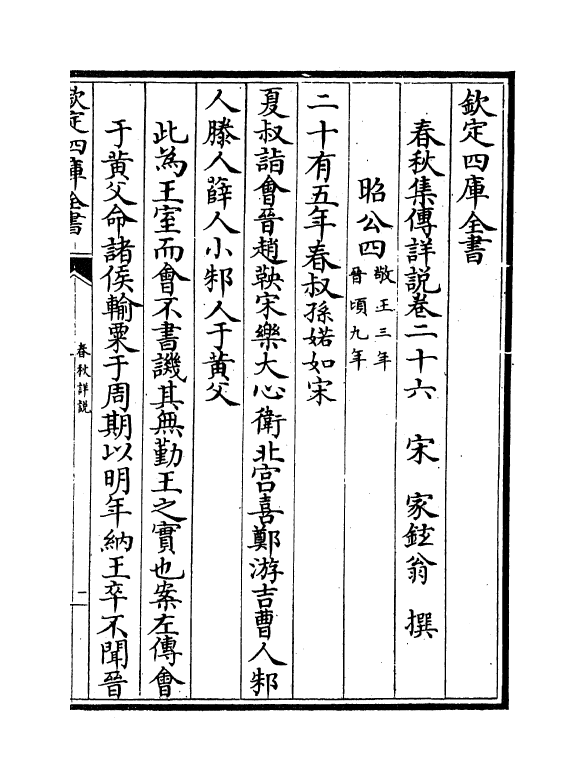 欽定四庫全書
春秋集傳詳說卷二十六 宋 家鉉翁 撰
昭公四 敬王三年
晉頃九年
二十有五年春叔孫婼如宋
夏叔詣會晉趙鞅宋樂大心衛北宫喜鄭游吉曹人邾
人滕人薛人小邾人于黄父
此為王室而會不書譏其無勤王之實也案左傳會
于黄父命諸侯輸粟于周期以明年納王卒不聞晉
欽定四庫全書
春秋詳說